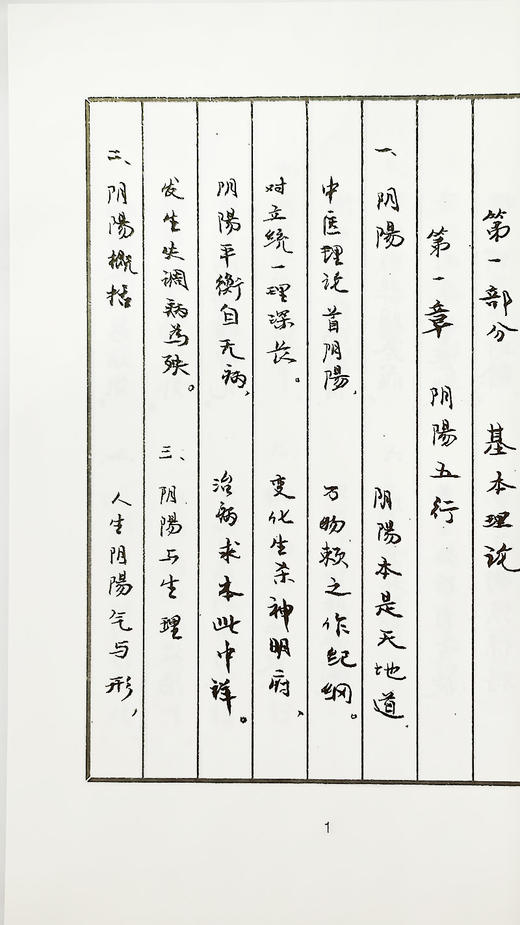 第一部分 基本理论
第一章 阴陽五行
一、阴陽
中医理论首阴陽,
对立统一理深长。
阴陽平衡自无病,
发生失调病為殃。
二、阴陽概括
阴陽本是天地道,
万物赖之作纪纲。
变化生杀神明府、
治病求本此中详。
三、阴陽与生理
人生阴陽气与形,
1